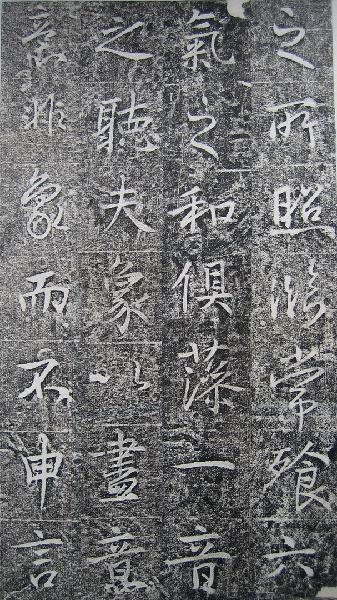 之所照常餐六
氣之和俱藻一音
之聽夫象以盡意
意非象而不申言